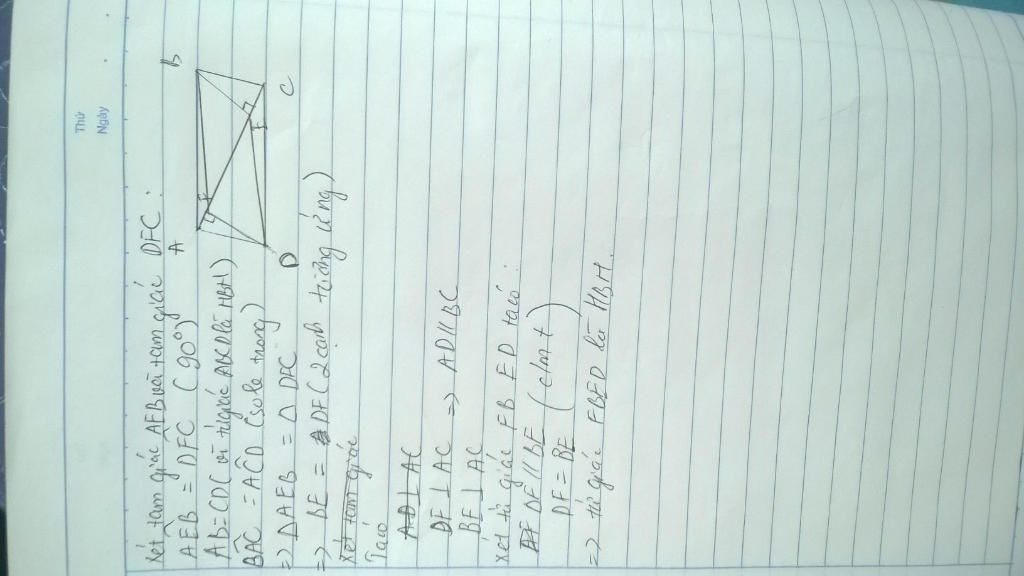 Thứ
Ngày
Xét tam giác AEB và tam giác DFC :
AÊB = DFC ( 90°)
AB=CD( vì tứ giác ABCD là HBH)
BÂC = AĈD (so le trong)
=> ΔAEB = Δ DFC
=> BE = DF( 2 cạnh tương ứng)
Xét tam giác
Ta có
AD⊥AC
DF⊥AC => AD//BC
BE⊥AC
Xét tứ giác FBED ta có :
AF DF//BE
DF=BE (cmt)
=> tứ giác FBED là HBH.
A
B
E
F
D
C